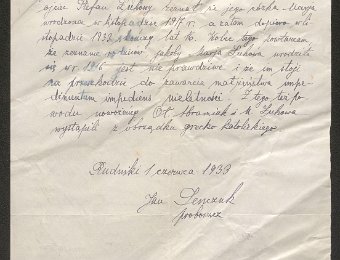 ojciec Stefan Łuhowy zeznał że jego córka Marja
urodzona w listopadzie 191 r. a zatem dopiero w li
stopadzie 193 skończy lat 16. Wobec tego powstaniem
że zeznanie rodziców jakoby Marja Łuhowa urodziła
się w r. 1916 jest nie prawdziwe i że im stoi
na przeszkodzie do zawarcia małżeństwa impe-
dimentum impediens nieletności. Z tego też po
wodu nowożeńcy Ot. Abramiak i M. Łuhowa
wystąpili z obrządku grecko katolickiego.
Rudniki 1 czerwca 1933
Jan Senczuk
proboszcz